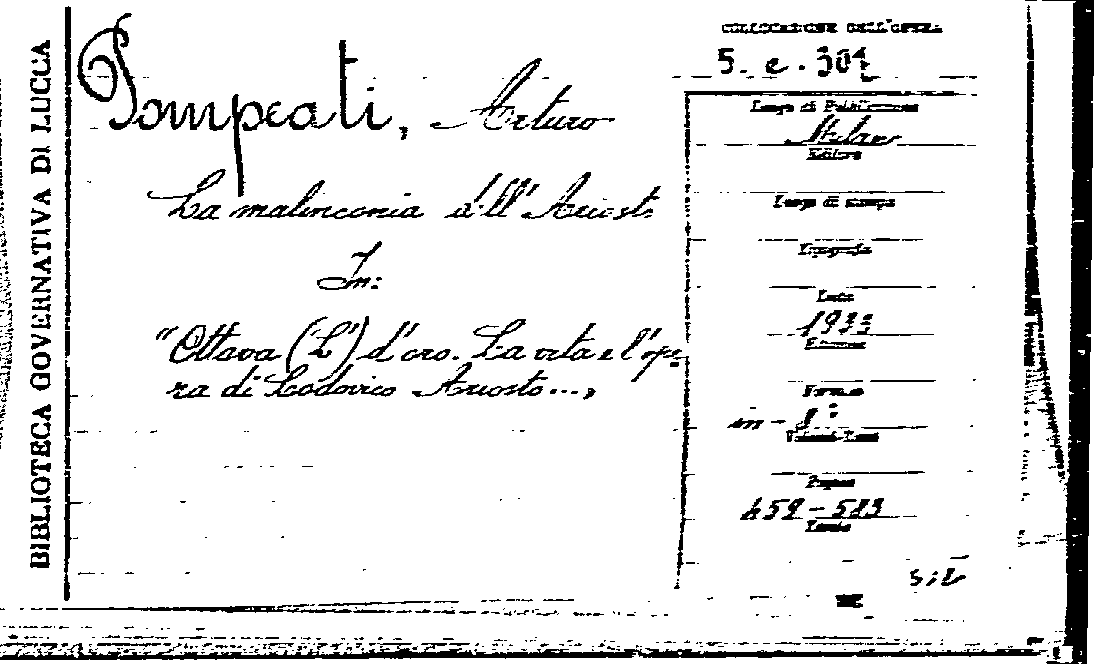 BIBLIOTECA GOVERNATIVA DI LUCCA
Pompeati, Arturo
La malinconia dell'Ariosto
In:
"Ottava (L') d'oro. La vita e l'ope-
ra di Lodovico Ariosto...,
COLLOCAZIONE DELL'OPERA
5. e. 304
Luogo di Pubblicazione
Milano
Editore
Luogo di stampa
Tipografia
Data
1933
Formato
in-8°
Volumi-Tomi
Pagine